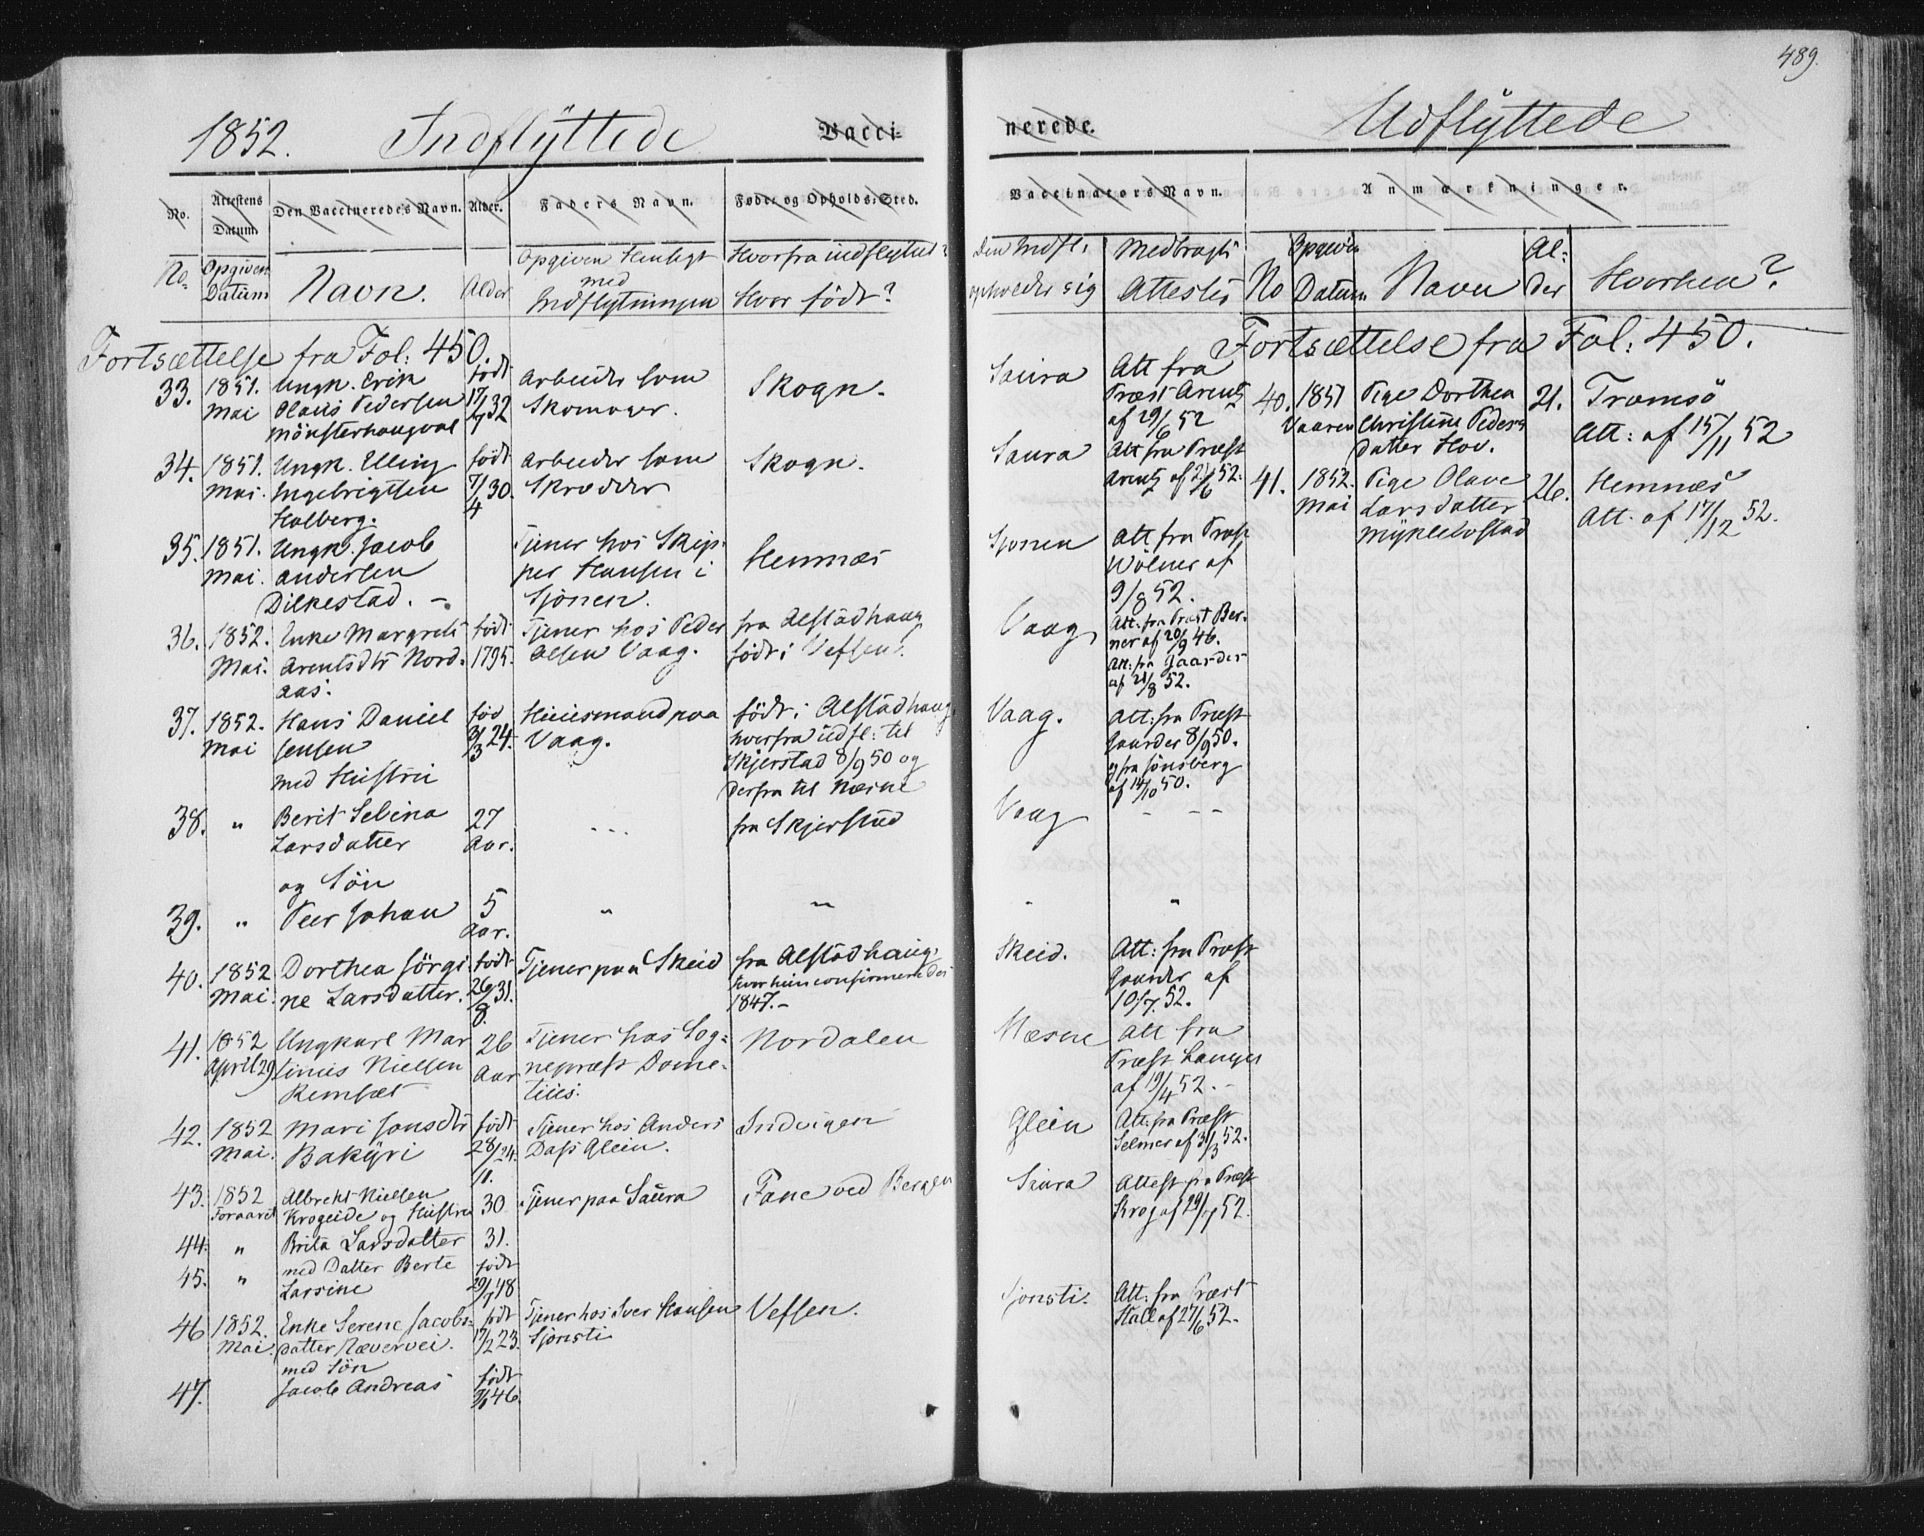 489.
1852. Indflÿttede Vacci-
nerede. Udflÿttede
No. Attestens Datum. Den Vaccineredes Navn. Alder. Faders Navn. Føde- og Opholds-Sted.
Vaccinators Navn. Anmærkninger.
No. Opgiven Datum Navn. Alder Opgiven Henligt med Indflytningen Hvorfra indflyttet? Hvor født?
Den Indfl: opholder sig Medbragt Attest No Opgiven Datum Navn Alder Hvorhen?
Fortsættelse fra Fol: 450.
33. 1851. Mai Ungk. Erik Olaus Pedersen Mönsterhaugval født 17/7 32 Arbeider som Skomager. Skogn.
34. 1851. Mai. Ungk. Elling Ingebrigtsen Holberg. født 7/4 30. Arbeider som Skræder Skogn.
35. 1851. Mai. Ungk. Jacob Andersen Dilkestad. – Tjener hos Skipper Hansen i Sjönen. Hemnæs
36. 1852. Mai. Enke Margrete Arentsdtr Nordaas. født 1795. Tjener hos Peder Olsen Vaag. fra Alstadhaug født i Vefsen.
37. 1852. Mai Hans Daniel Jensen med Hustru fød 3/3 24. Huusmand paa Vaag. født i Alstadhaug hvorfra udfl: til Skjerstad 8/9 50 og derfra til Næsne
38. " Berit Selina Larsdatter og Sön 27 Aar. fra Skjerstad
39. " Peer Johan 5 Aar. " "
40. 1852 Mai. Dorthea Jörgine Larsdatter. født 26/8 31. Tjener paa Skeid fra Alstadhaug, hvor hun confirmeredes 1847. –
41. 1852 April 29 Ungkarl Martinus Nielsen Remsæt 26 Aar Tjener hos Sognepræst Dometius. Nordalen
42. 1852 Mai. Mari Jonsdtr Bakÿri født 28/11 24. Tjener hos Anders Dass Glein. Indvigen
43. 1852 Foraaret Albrekt Nielsen Krogeide og Hustru 30 Tjener paa Saura Fane ved Bergen
44. " Brita Larsdatter 31.
45. " med Datter Berte Larsine født 29/7 48
46 1852. Mai. Enke Serene Jacobsdatter Nævervei. med Sön født 17/2 23. Tjener hos Iver Hansen Sjonsti Vefsen.
47. Jacob Andreas født 46.
Saura Att fra Præst Arentz af 29/6 52
Saura Att fra Præst Arentz af 2/6 52.
Sjonen Att. fra Præst Wölner af 9/8 52.
Vaag, Att. fra Præst Berner af 20/9 46. Att. fra Gaarder af 21/8 52.
Vaag. Att: fra Præst Gaarder 8/9 50. og fra Jönsberg af 14/10 50.
Vaag – – –
" "
Skeid. Att: fra Præst Gaarder af 10/7 52.
Næsne Att fra Præst Langes af 19/4 52. –
Glein Att. fra Præst Selmer af 31/3 52.
Saura Attest fra Præst Krog af 29/7 52.
Sjonsti. Att. fra Præst Stall af 27/6 52.
Fortsættelse fra Fol: 450.
40. 1851 Vaaren Pige Dorthea Christine Pedersdatter Hov. 21. Tromsö Att: af 15/11 52
41. 1852. Mai Pige Olave Larsdatter Myklebostad 26. Hemnæs Att. af 17/12 52.